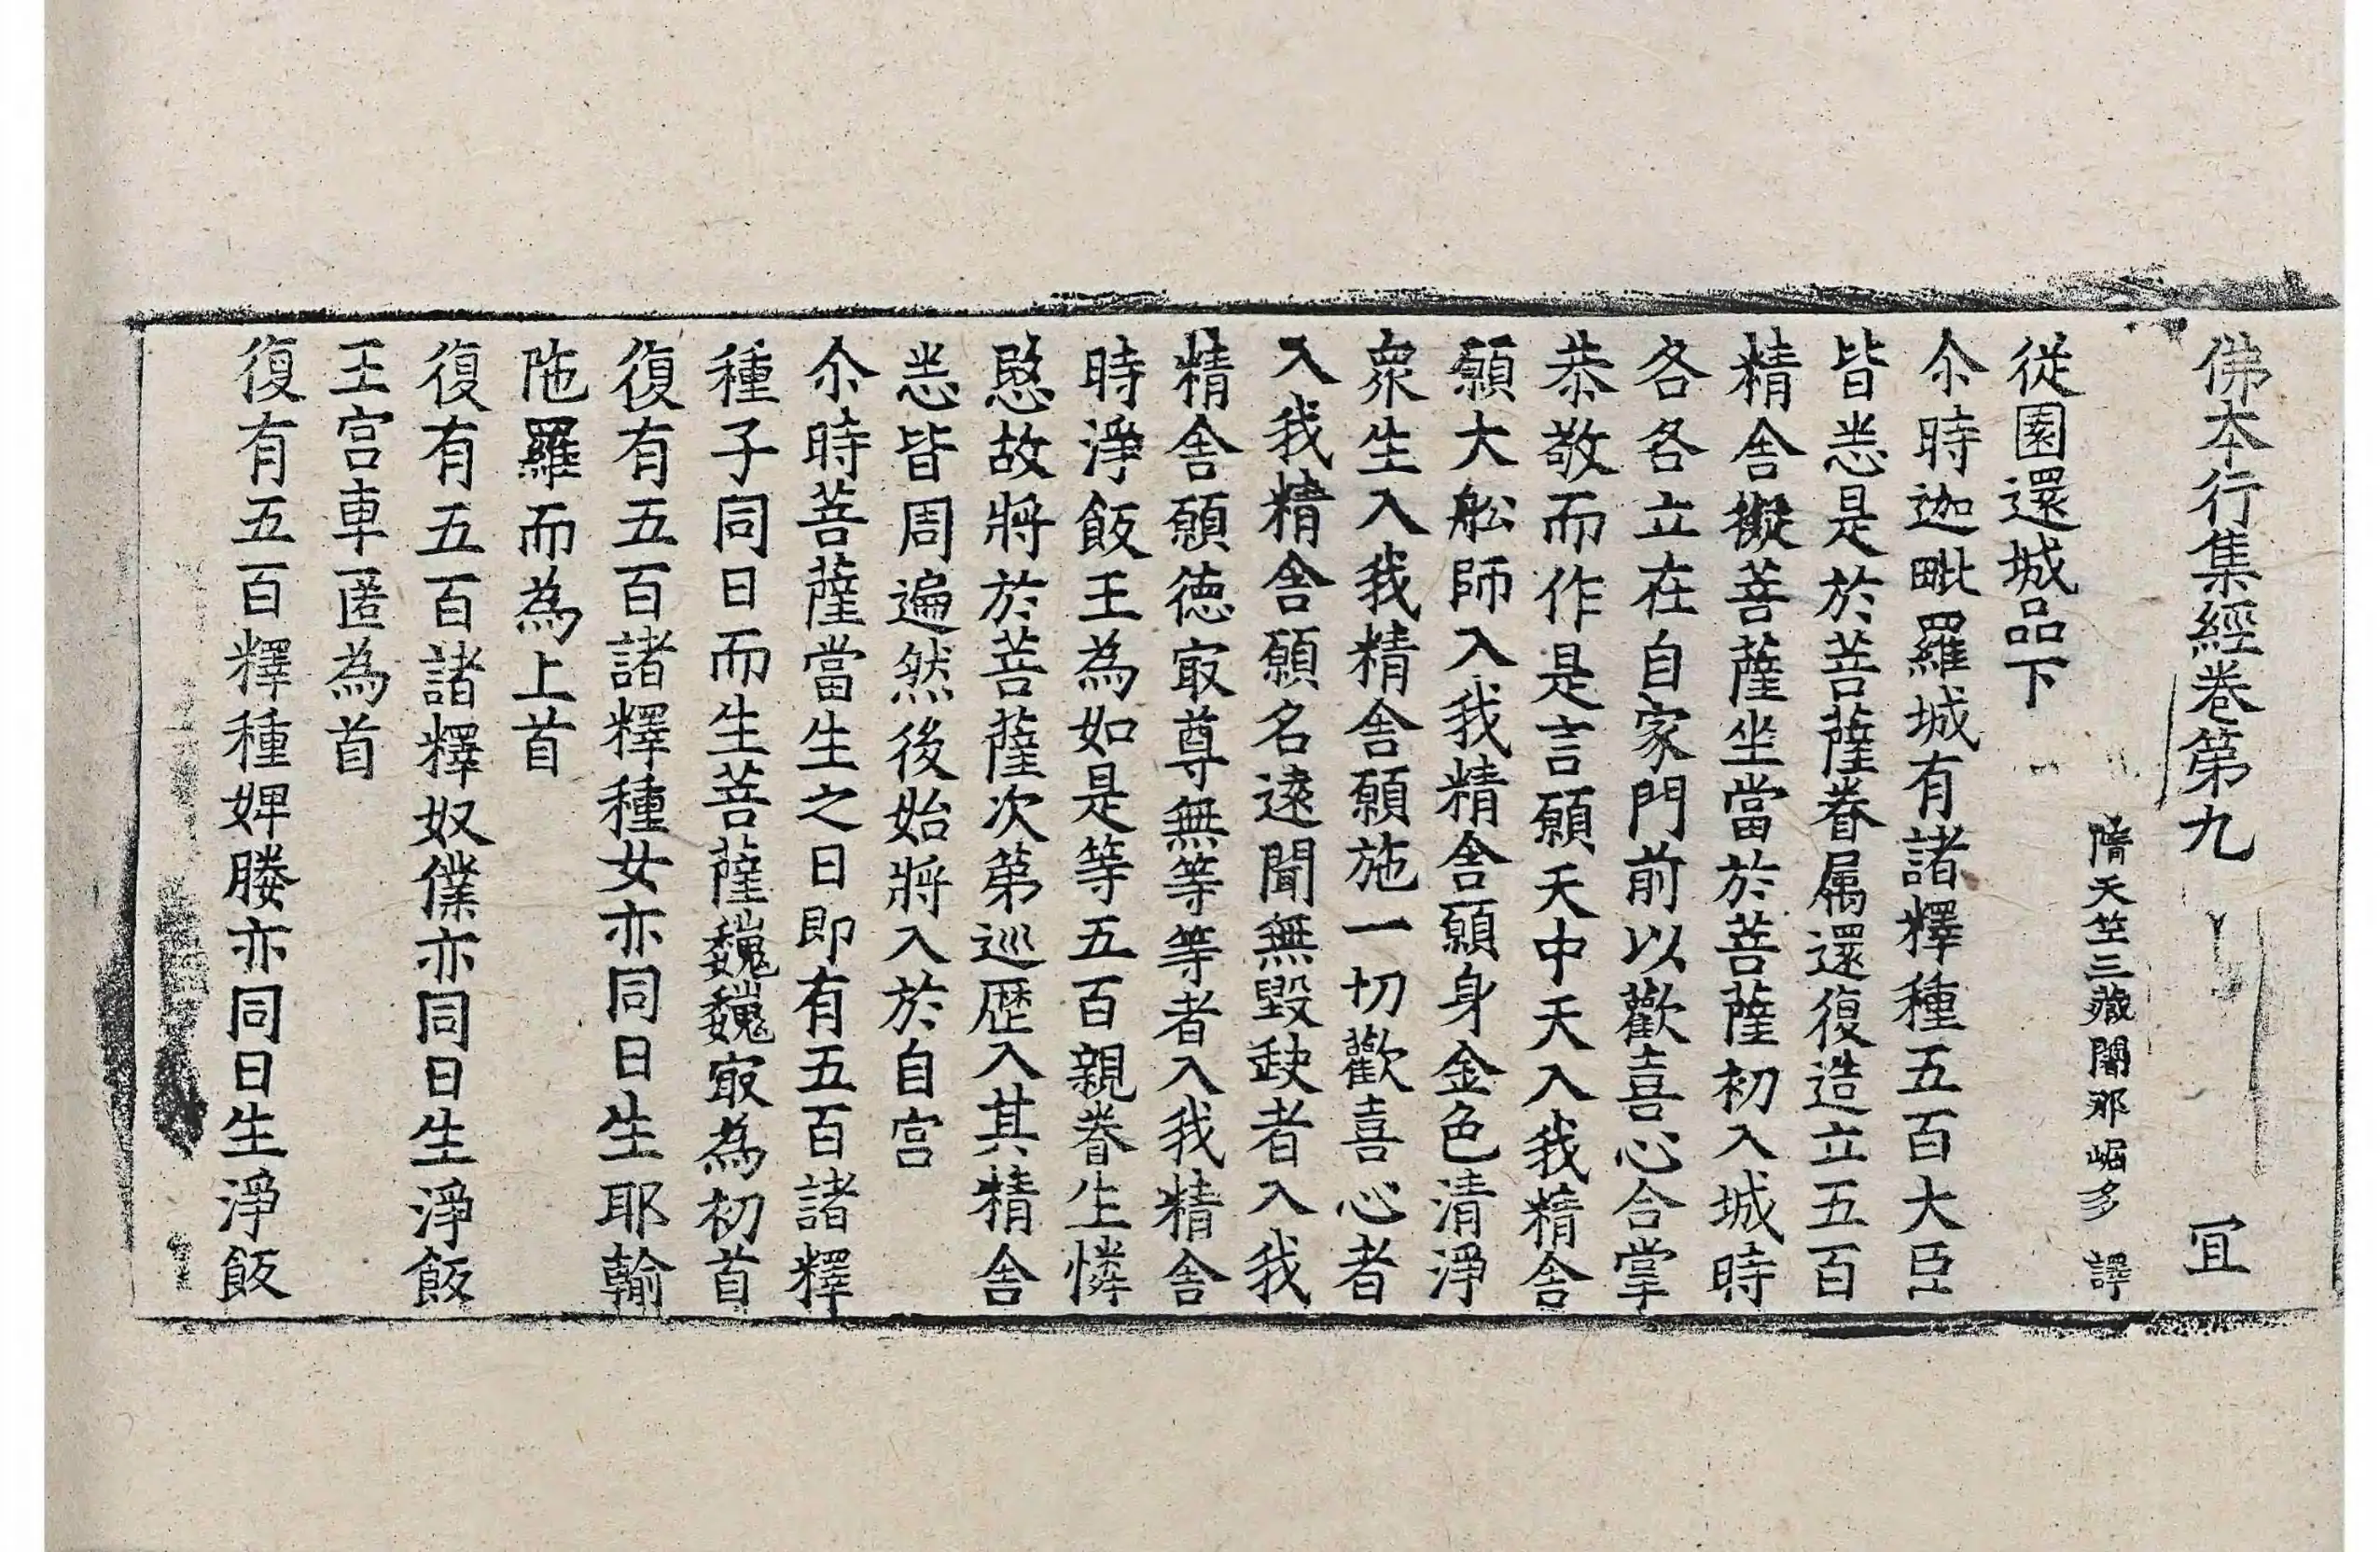 佛本行集經卷第九 冝
隋天竺三藏闍那崛多 譯
從園還城品下
尒時迦毗羅城有諸釋種五百大臣
皆悉是於菩薩眷属還復造立五百
精舍擬菩薩坐當於菩薩初入城時
各各立在自家門前以歡喜心合掌
恭敬而作是言願天中天入我精舍
願大舩師入我精舍願身金色清淨
衆生入我精舍願施一切歡喜心者
入我精舍願名遠聞無毀缺者入我
精舍願德㝡尊無等等者入我精舍
時淨飯王為如是等五百親眷生憐
愍故將於菩薩次第巡歷入其精舍
悉皆周遍然後始將入於自宮
尒時菩薩當生之日即有五百諸釋
種子同日而生菩薩巍巍㝡為初首
復有五百諸釋種女亦同日生耶輸
陁羅而為上首
復有五百諸釋奴僕亦同日生淨飯
王宮車匿為首
復有五百釋種婢媵亦同日生淨飯